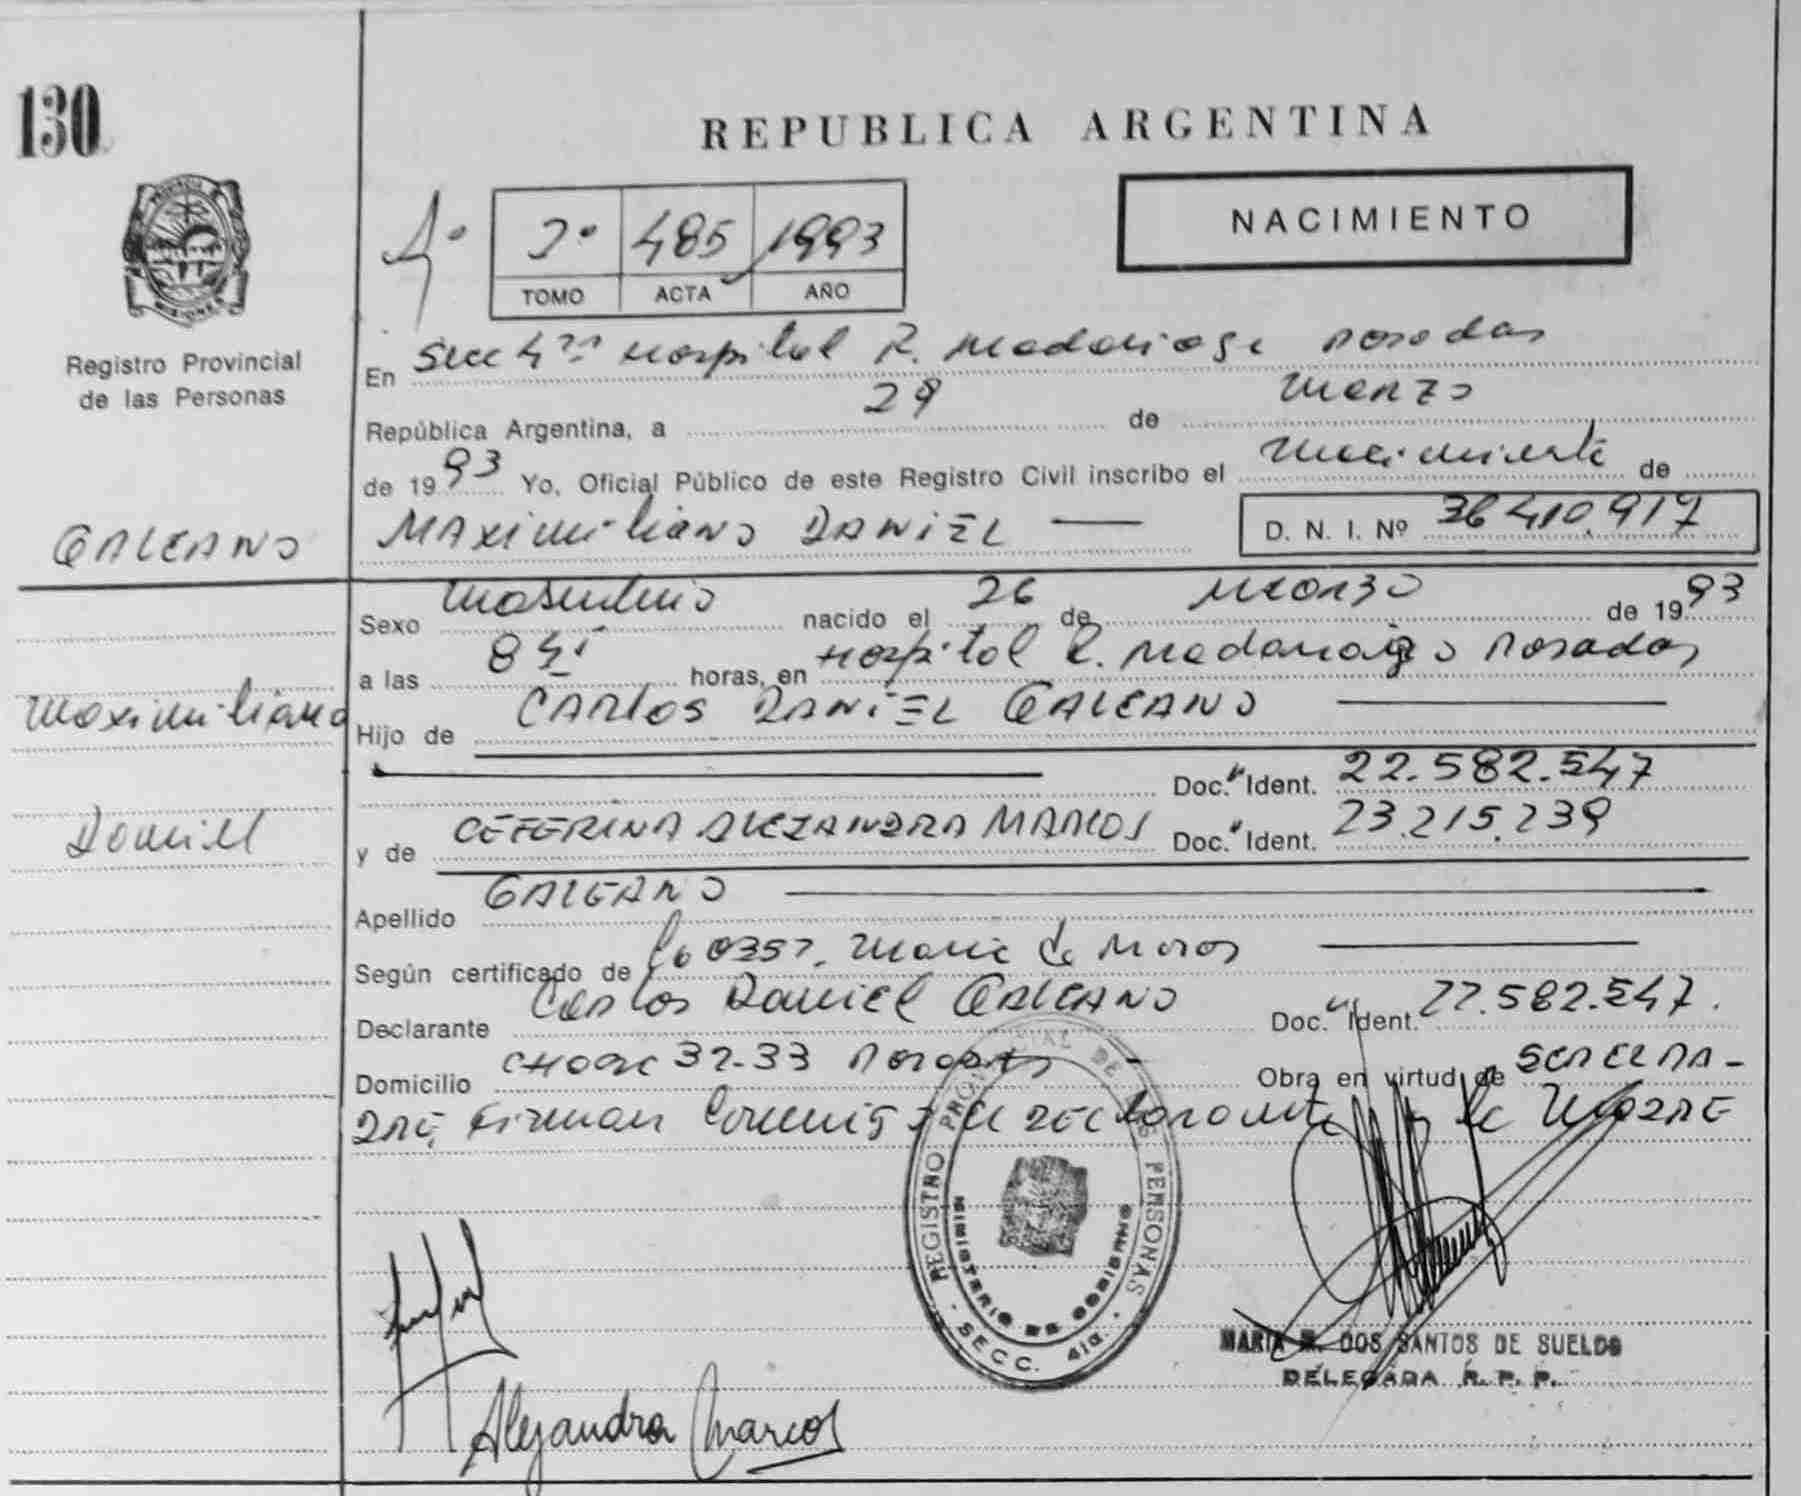 130
REPUBLICA ARGENTINA
NACIMIENTO
4º 2º 485 1993
TOMO ACTA AÑO
Registro Provincial
de las Personas
En Secc 4ta Hospital R. Madariaga Posadas
República Argentina, a 29 de Marzo
de 1993 Yo, Oficial Público de este Registro Civil inscribo el nacimiento de
GALEANO
MAXIMILIANO DANIEL
D. N. I. Nº 36.410.917
Sexo masculino nacido el 26 de marzo de 1993
a las horas, en Hospital R. Madariaga Posadas
Maximiliano
Hijo de CARLOS DANIEL GALEANO
Doc. Ident. 22.582.547
Daniel
y de CEFERINA ALEJANDRA MARCOS Doc. Ident. 23.215.239
Apellido GALEANO
Según certificado de
Declarante Carlos Daniel GALEANO Doc. Ident. 22.582.547.
Domicilio 32-33 Posadas Obra en virtud de
Firman Conmigo el declarante y la MADRE
REGISTRO PROVINCIAL DE LAS PERSONAS
MINISTERIO DE GOBIERNO
SECC. 4ta.
MARIA M. DOS SANTOS DE SUELDO
DELEGADA R. P. P.
Alejandra Marcos